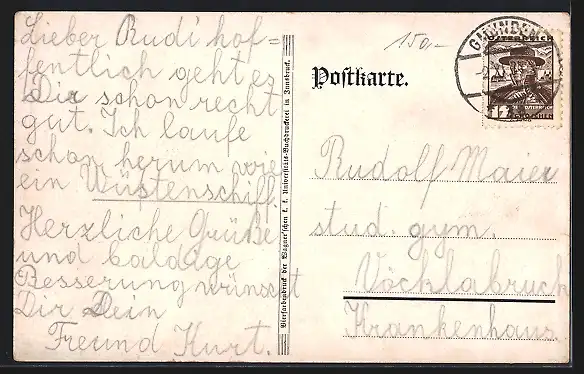 Lieber Rudi hof=
fentlich geht es
Dir schon recht
gut. Ich laufe
schon herum wie
ein Wüstenschiff.
Herzliche Grüße
und baldige
Besserung wünscht
Dir Dein
Freund Kurt.
Vierfarbendruck der Wagner'schen k. k. Universitäts-Buchdruckerei in Innsbruck.
150,-
Postkarte.
GMUNDEN
ÖSTERREICH
12
GROSCHEN
Rudolf Maier
stud. gym.
Vöcklabruck
Krankenhaus